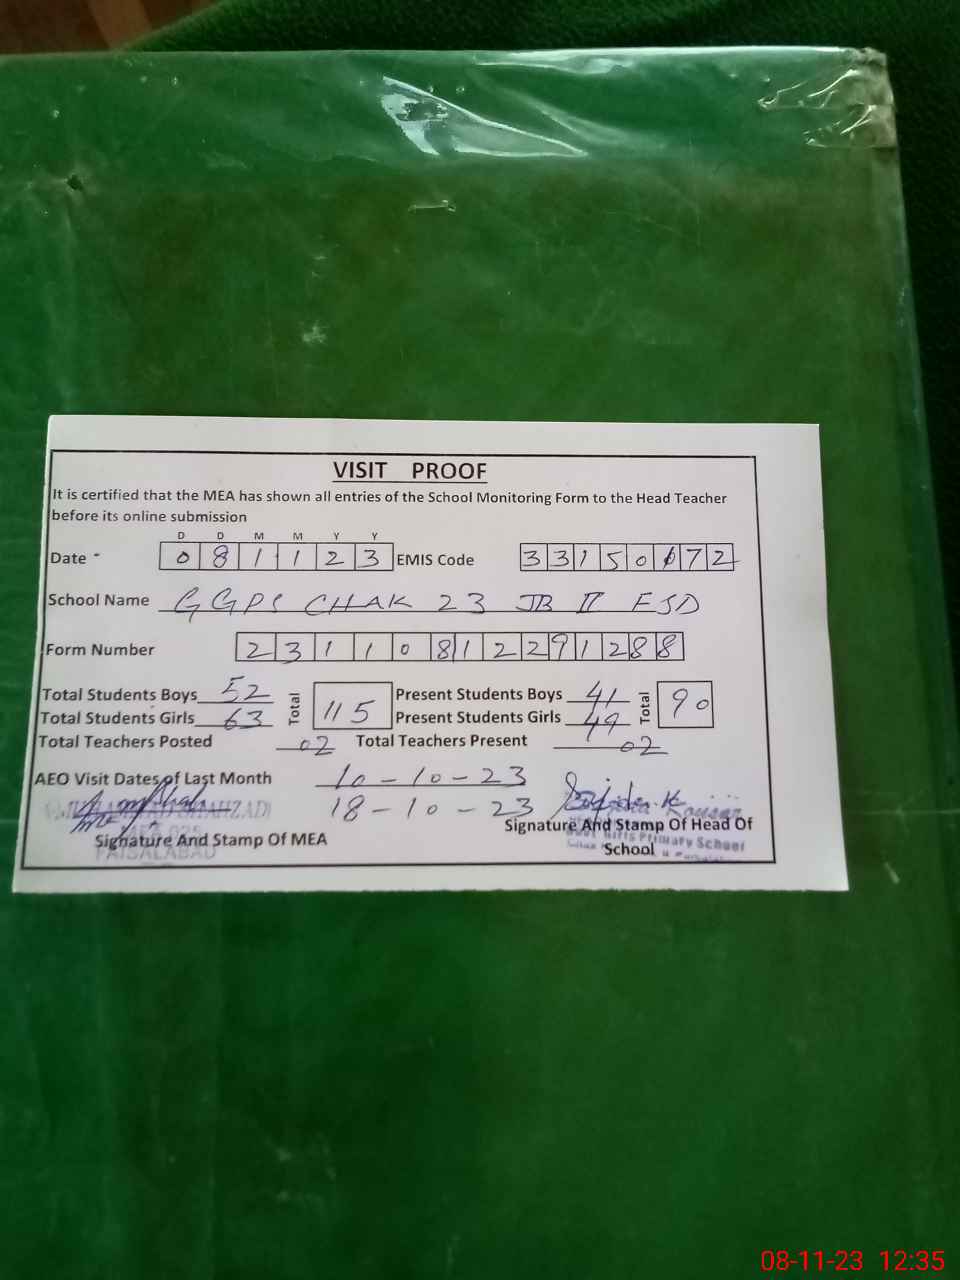 VISIT PROOF
It is certified that the MEA has shown all entries of the School Monitoring Form to the Head Teacher
before its online submission
D D M M Y Y
Date 0 8 1 1 2 3 EMIS Code 3 3 1 5 0 6 7 2
School Name GGPS CHAK 23 JB II FSD
Form Number 2 3 1 1 0 8 1 2 2 9 1 2 8 8
Total Students Boys 52 Total 115 Present Students Boys 41 Total 90
Total Students Girls 63 Present Students Girls 49
Total Teachers Posted 02 Total Teachers Present 02
AEO Visit Dates of Last Month 10-10-23
18-10-23
Kousar
Signature And Stamp Of MEA Signature And Stamp Of Head Of
School
FAISALABAD
Primary School
08-11-23 12:35